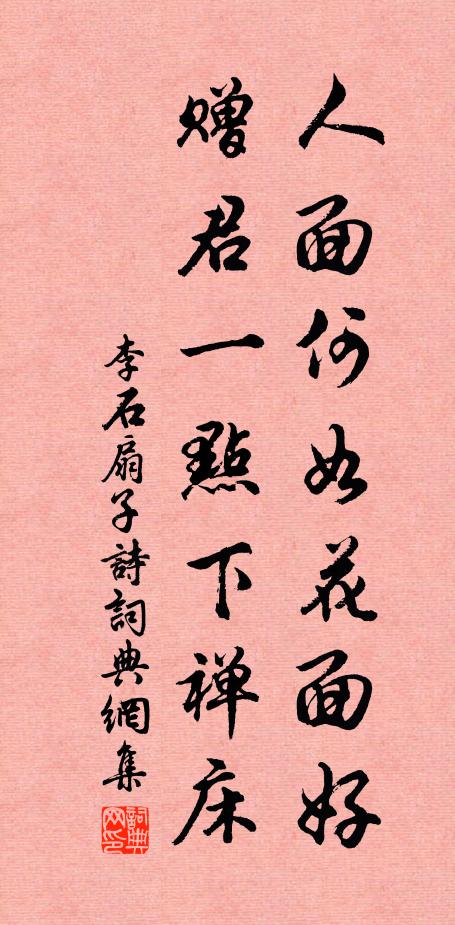 人面何如花面好
赠君一點下禅床
李石扇子詩詞典網集
詞典网印